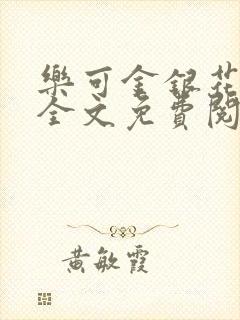 樂可金銀花
全文免費閱
黃敏霞